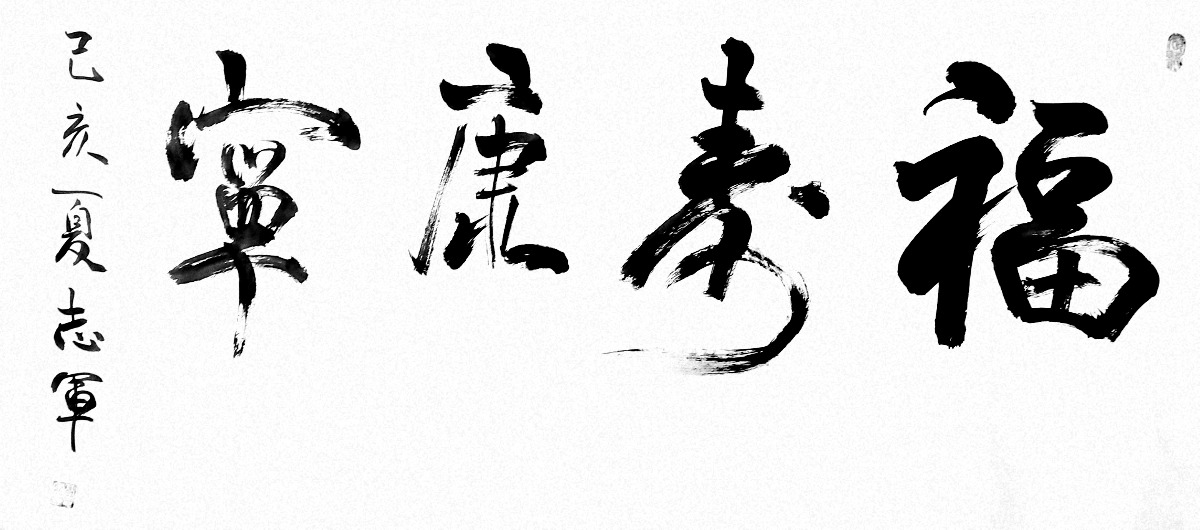 福寿康寧
己亥夏志軍